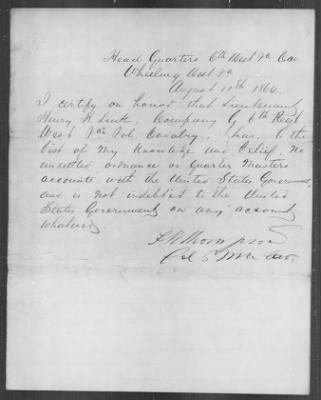 Head Quarters 6th West Va Cav
Wheeling West Va
August 11th 1864
I certify on honor that Lieutenant
Henry R Link, Company G 6th Regt
West Va Vol Cavalry, has, to the
best of my Knowledge and Belief, no
unsettled ordnance or Quarter Masters
accounts with the United States Government,
and is not indebted to the United
States Government, on any account
whatever
F W Thompson
Col 6 W Va Cav